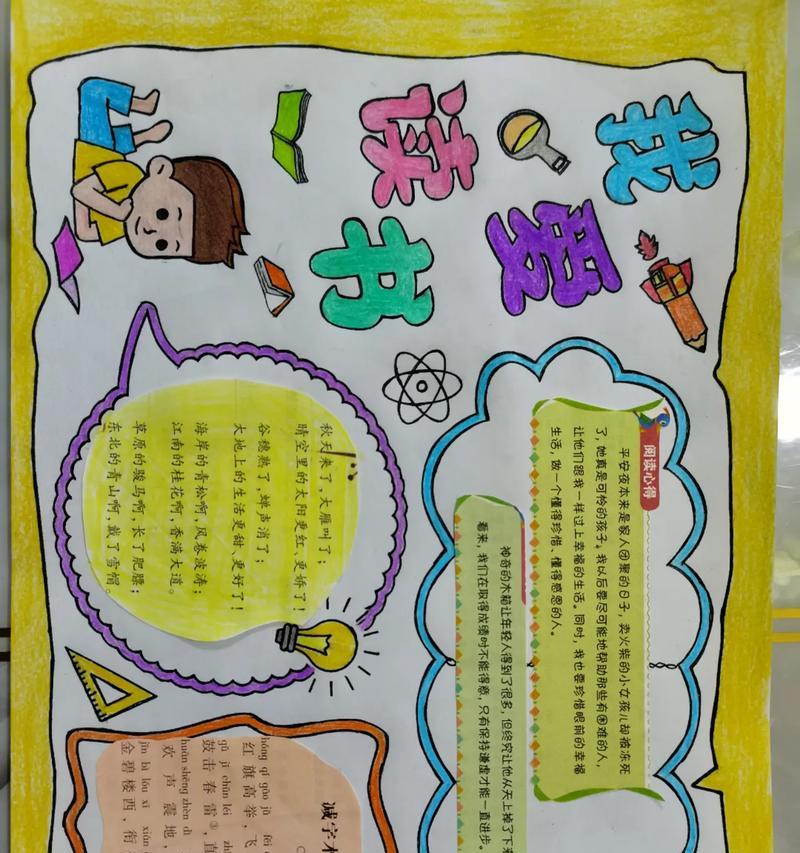 我爱读书
阅读心得
平安夜本来是家人团聚的日子，卖火柴的小女孩儿却被冻死
了，她真是可怜的孩子。我以后要尽可能地帮助那些有困难的人，
让他们跟我一样过上幸福的生活。同时，我也要珍惜眼前的幸福
生活，做一个懂得珍惜、懂得感恩的人。
神奇的木箱让年轻人得到了很多，但终究让他从天上掉了下来
看来，我们在取得成绩时不能得意，只有保持谦虚才能一直进步。
秋天来了，大雁叫了；
晴空里的太阳更红、更娇了！
谷穗熟了，蝉声消了；
大地上的生活更甜、更好了！
海岸的青松啊，风卷波涛；
江南的桂花啊，香满大道。
草原的骏马啊，长了肥膘；
东北的青山啊，戴了雪帽。
减字木
hóng qí gāo jǔ fēi
红旗高举，飞
gǔ jī chūn léi
鼓击春雷③，直
huān shēng zhèn dì
欢声震地，
jīn bì lóu xī xián
金碧楼西，衔